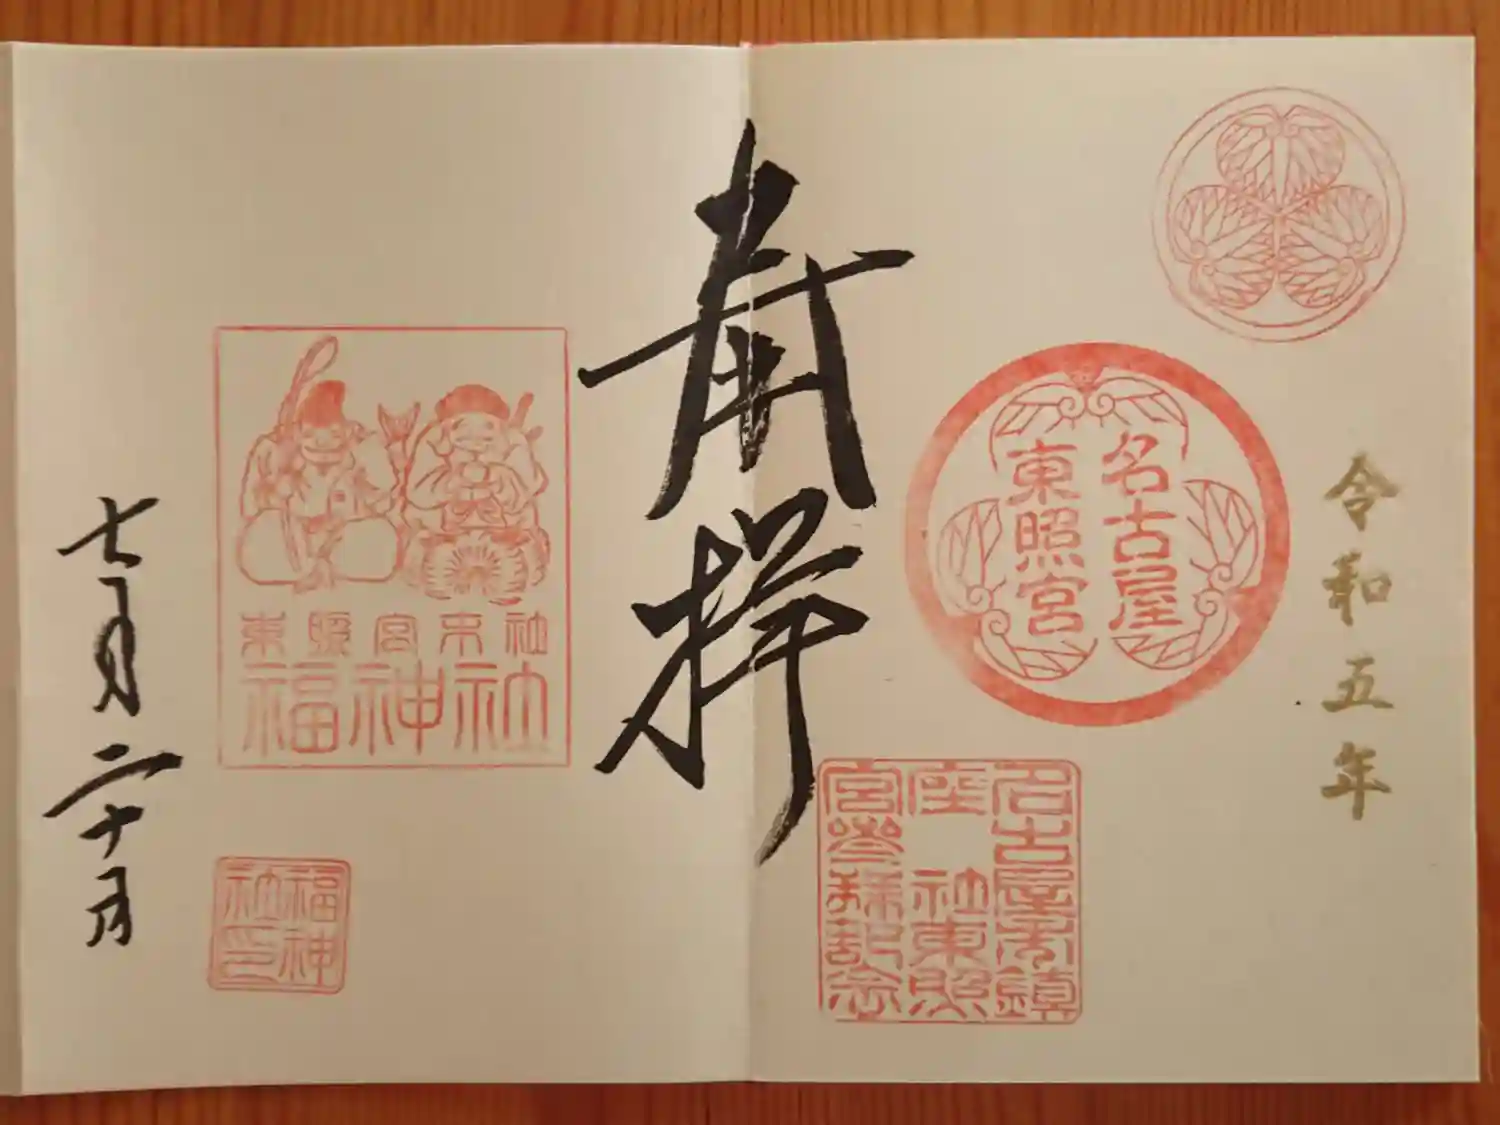 令和五年
名古屋
東照宮
名古屋市鎮
座 社東照
宮參拝記念
奉拝
東照宮末社
福神社
福神
社印
七月二十日